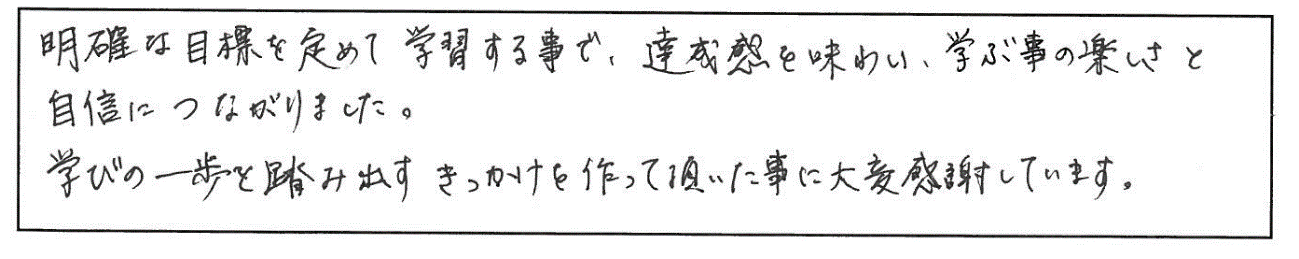 明確な目標を定めて学習する事で、達成感を味わい、学ぶ事の楽しさと
自信につながりました。
学びの一歩を踏み出すきっかけを作って頂いた事に大変感謝しています。